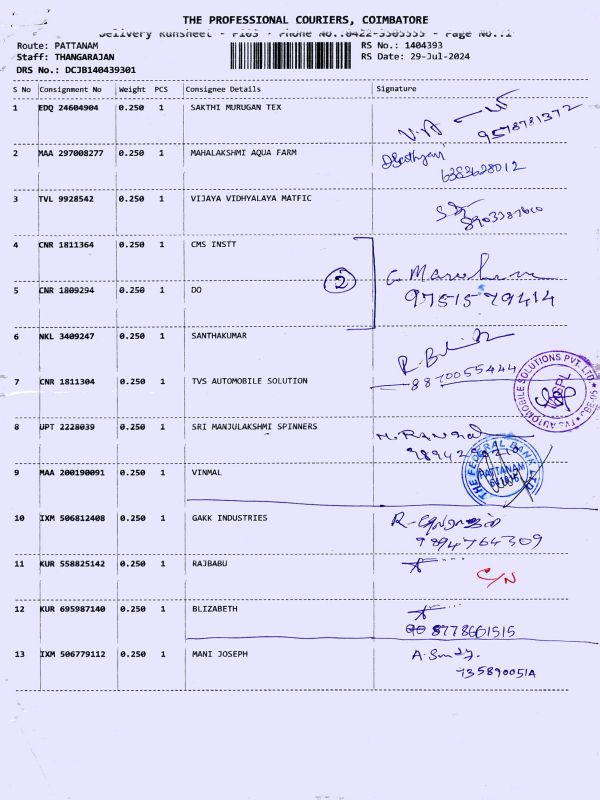 THE PROFESSIONAL COURIERS, COIMBATORE
Delivery Runsheet - P103 - Phone No.:0422-3505555 - Page No.:1
Route: PATTANAM
RS No.: 1404393
Staff: THANGARAJAN
RS Date: 29-Jul-2024
DRS No.: DCJB140439301
S No Consignment No Weight PCS Consignee Details Signature
1 EDQ 24604904 0.250 1 SAKTHI MURUGAN TEX
9578781372
2 MAA 297008277 0.250 1 MAHALAKSHMI AQUA FARM
6383628012
3 TVL 9928542 0.250 1 VIJAYA VIDHYALAYA MATFIC
4 CNR 1811364 0.250 1 CMS INSTT
2
5 CNR 1809294 0.250 1 DO
9751579414
6 NKL 3409247 0.250 1 SANTHAKUMAR
8870055444
7 CNR 1811304 0.250 1 TVS AUTOMOBILE SOLUTION
TVS AUTOMOBILE SOLUTIONS PVT. LTD.
8 UPT 2228039 0.250 1 SRI MANJULAKSHMI SPINNERS
THE FEDERAL BANK LTD
PATTANAM
9 MAA 200190091 0.250 1 VINMAL
10 IXM 506812408 0.250 1 GAKK INDUSTRIES
9894764309
11 KUR 558825142 0.250 1 RAJBABU
C/N
12 KUR 695987140 0.250 1 BLIZABETH
8778661515
13 IXM 506779112 0.250 1 MANI JOSEPH